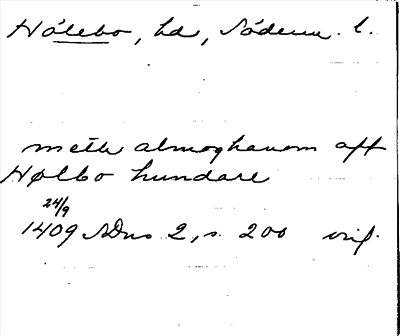 Hölebo, hd, Söderm. l.
meth almoghanom aff
Hølbo hundare
24/9
1409 SDns 2, s. 200 orig.